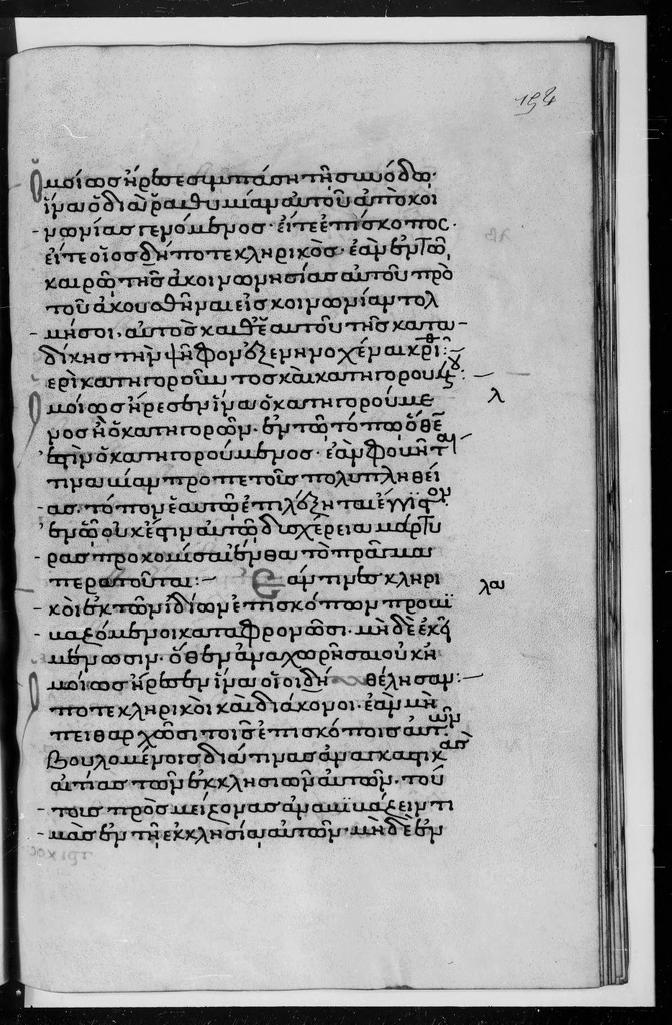 194
Ὁμοίως ἤρεσε συμπάση τῆ συνόδω·
ἵνα ὁ διὰ ῥαθυμίαν αὐτοῦ ἀποκοι
νωνίας γενόμενος· εἴτε ἐπίσκοπος·
εἴτε οἱοσδήποτε κληρικὸς· ἐὰν ἐν τῶ
καιρῶ τῆς ἀκοινωνησίας αὐτοῦ πρὸ
τοῦ ἀκουσθῆναι εἰς κοινωνίαν τολ
μήσοι, αὐτὸς καθ' ἑαυτοῦ τῆς κατα
δίκης τὴν ψῆφον ἐξενηνοχέναι κριθῆ:~
Περὶ κατηγοροῦντος καὶ κατηγορουμένου:~
Ὁμοίως ἤρεσεν ἵνα ὁ κατηγορούμε
νος ἢ ὁ κατηγορῶν· ἐν τῶ τόπω ὅθεν
ἐστὶν ὁ κατηγορούμενος· ἐὰν φοβῆται
τινα βίαν προπετοῦς πολυπληθεί
ας· τόπον ἑαυτῶ ἐπιλέξηται ἔγγιστα
ἐν ὧ οὐκ ἔστιν αὐτῶ δυσχέρεια μάρτυ
ρας προκομίσαι ἔνθα τὸ πρᾶγμα
περατοῦται:~ Ἐάν τινες κληρι
κοὶ ἐκ τῶν ἰδίων ἐπισκόπων προβι
βαζόμενοι καταφρονῶσι· μηδὲ ἐκεῖ
μένωσιν· ὅθεν ἀναχωρῆσαι οὐκ ἠ
θέλησαν:~
Ὁμοίως ἤρεσεν ἵνα οἱοιδή
ποτε κληρικοὶ καὶ διάκονοι· ἐὰν μὴ
πειθαρχῶσι τοῖς ἐπισκόποις αὐτῶν
βουλομένοις διά τινας ἀναγκαίας
αἰτίας τῶν ἐκκλησιῶν αὐτῶν· τού
τοις πρὸς μείζονας ἀναβιβάζειν τι
μὰς ἐν τῆ ἐκκλησία αὐτῶν· μηδὲ ἐν
λ
λα